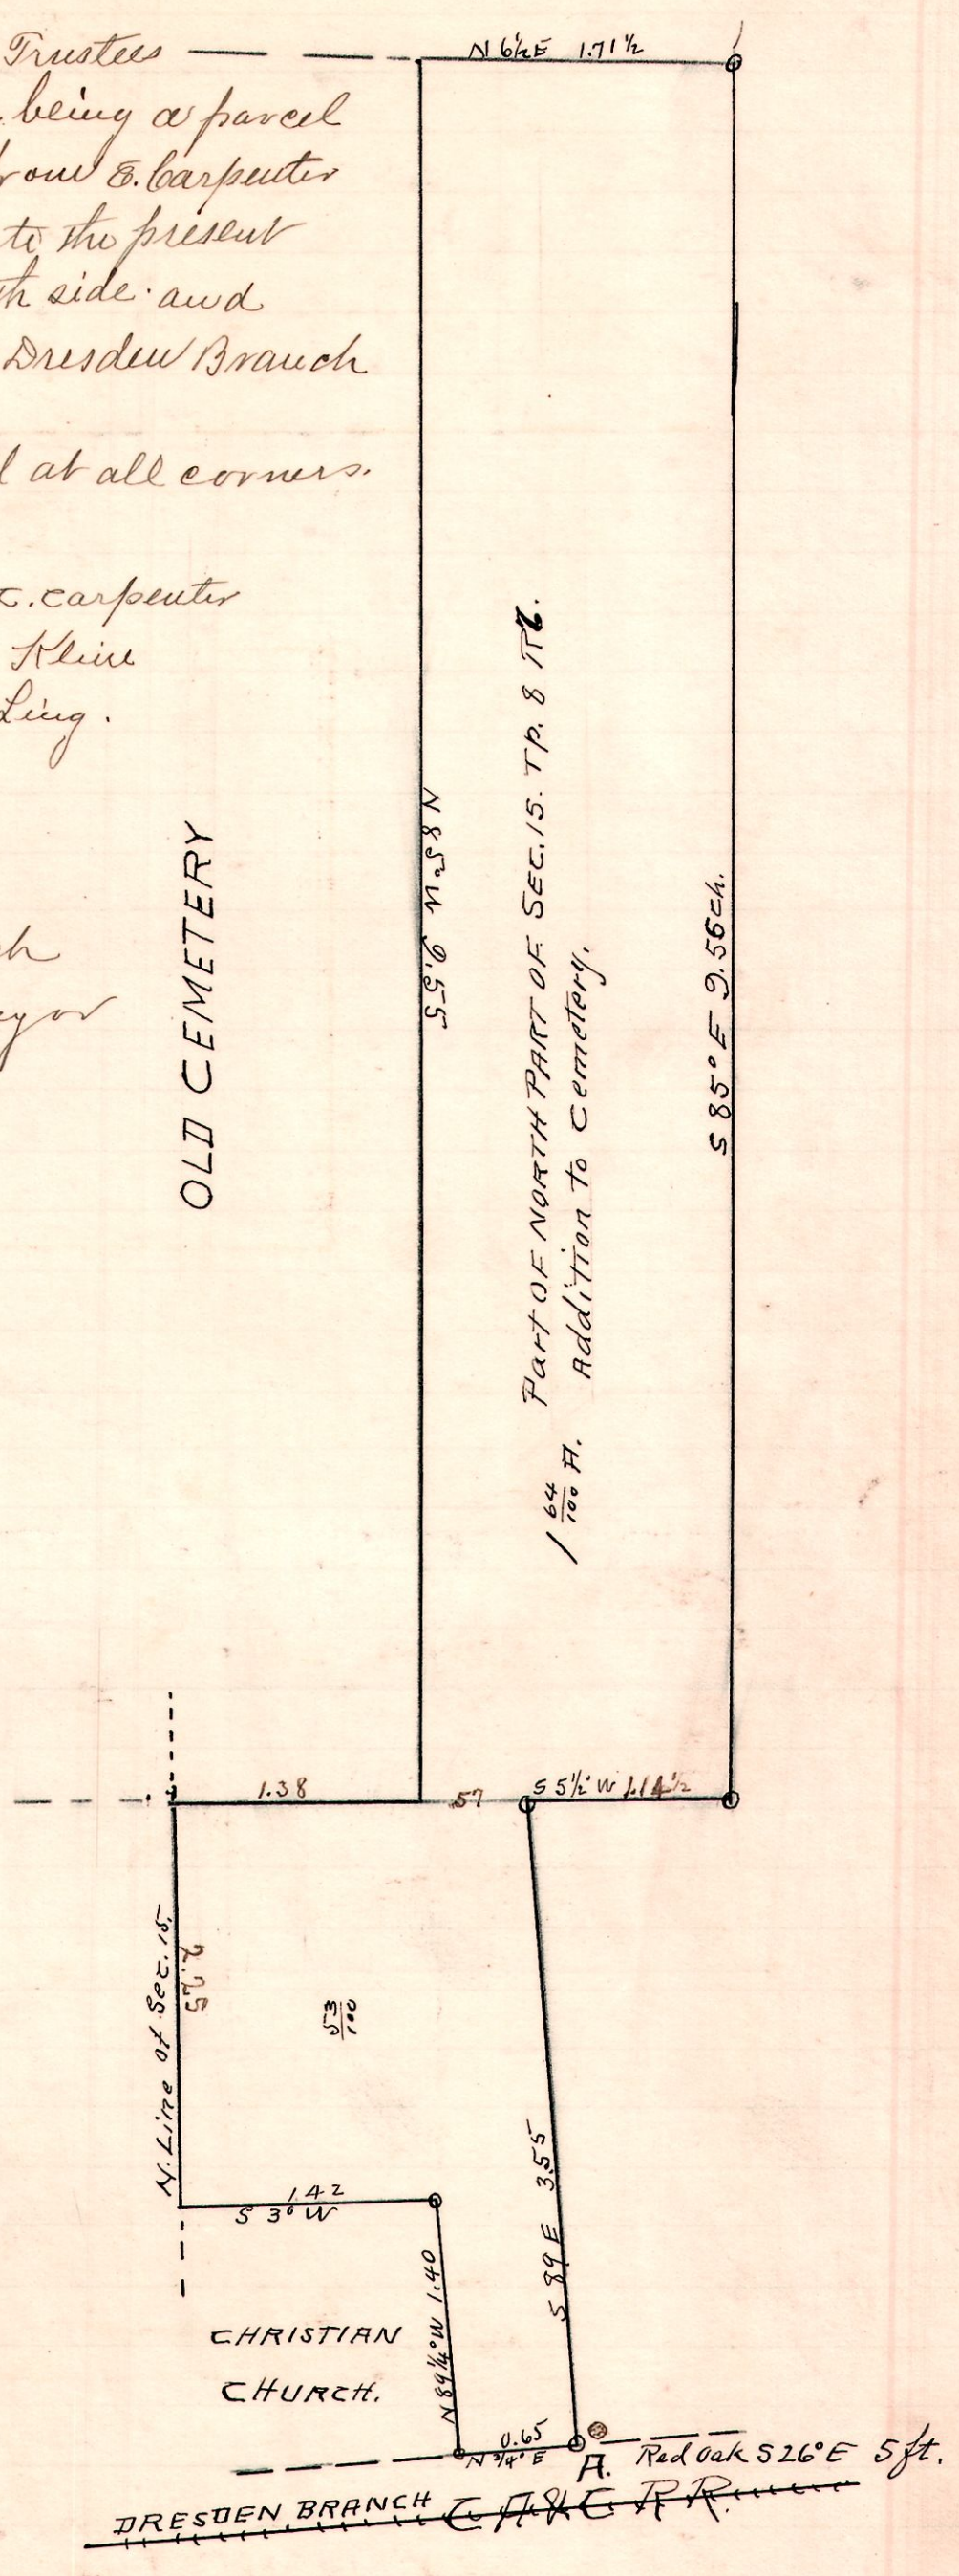 Trustees
being a parcel
E. Carpenter
to the present
side and
Dresden Branch
at all corners.
Carpenter
Kline
Ling.
OLD CEMETERY
N 6½ E 1.71½
N 85 W 9.55
Part OF NORTH PART OF SEC. 15. TP. 8 R
Addition to Cemetery.
1 64/100 A.
S 85° E 9.56 ch.
1.38
.57
S 5½° W 1.14½
N. Line of Sec. 15.
2.25
53/100
1.42
S 3° W
N 89¼° W 1.40
S 89 E 3.55
CHRISTIAN
CHURCH.
0.65
N ¾° E
A.
Red Oak S 26° E 5 ft.
DRESDEN BRANCH C A & C R R.